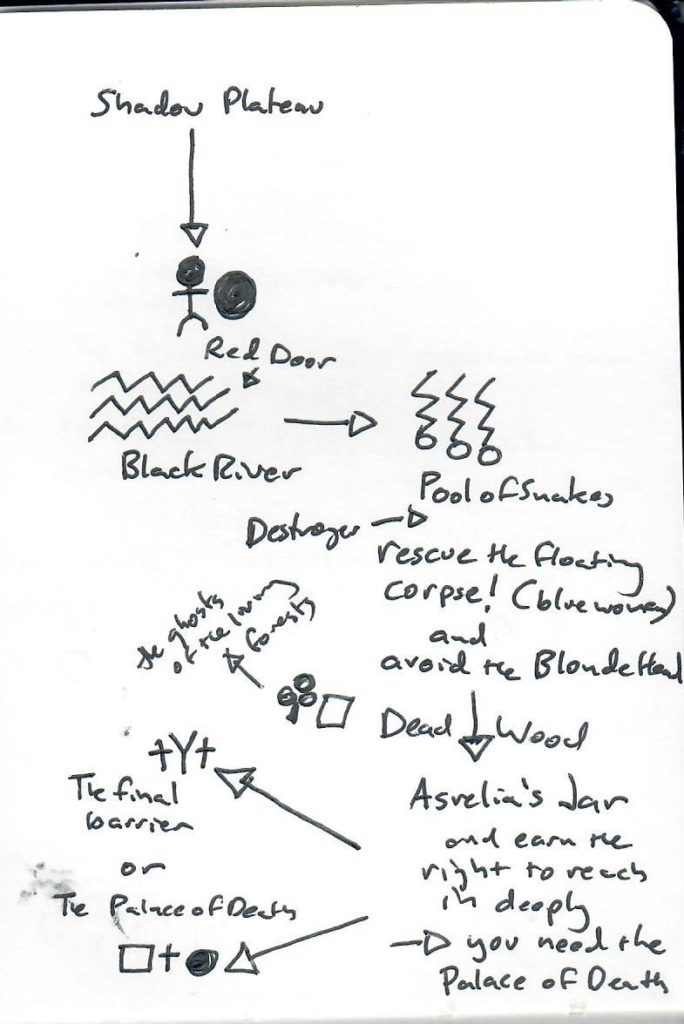 Shadow Plateau
Red Door
Black River
Pool of Snakes
Destroyer
rescue the floating
corpse! (blue women)
and
avoid the Blonde Hand
the ghosts
of the living
forests
Dead Wood
Asrelia's Jar
and earn the
right to reach
in deeply
you need the
Palace of Death
The final
barrier
or
The Palace of Death